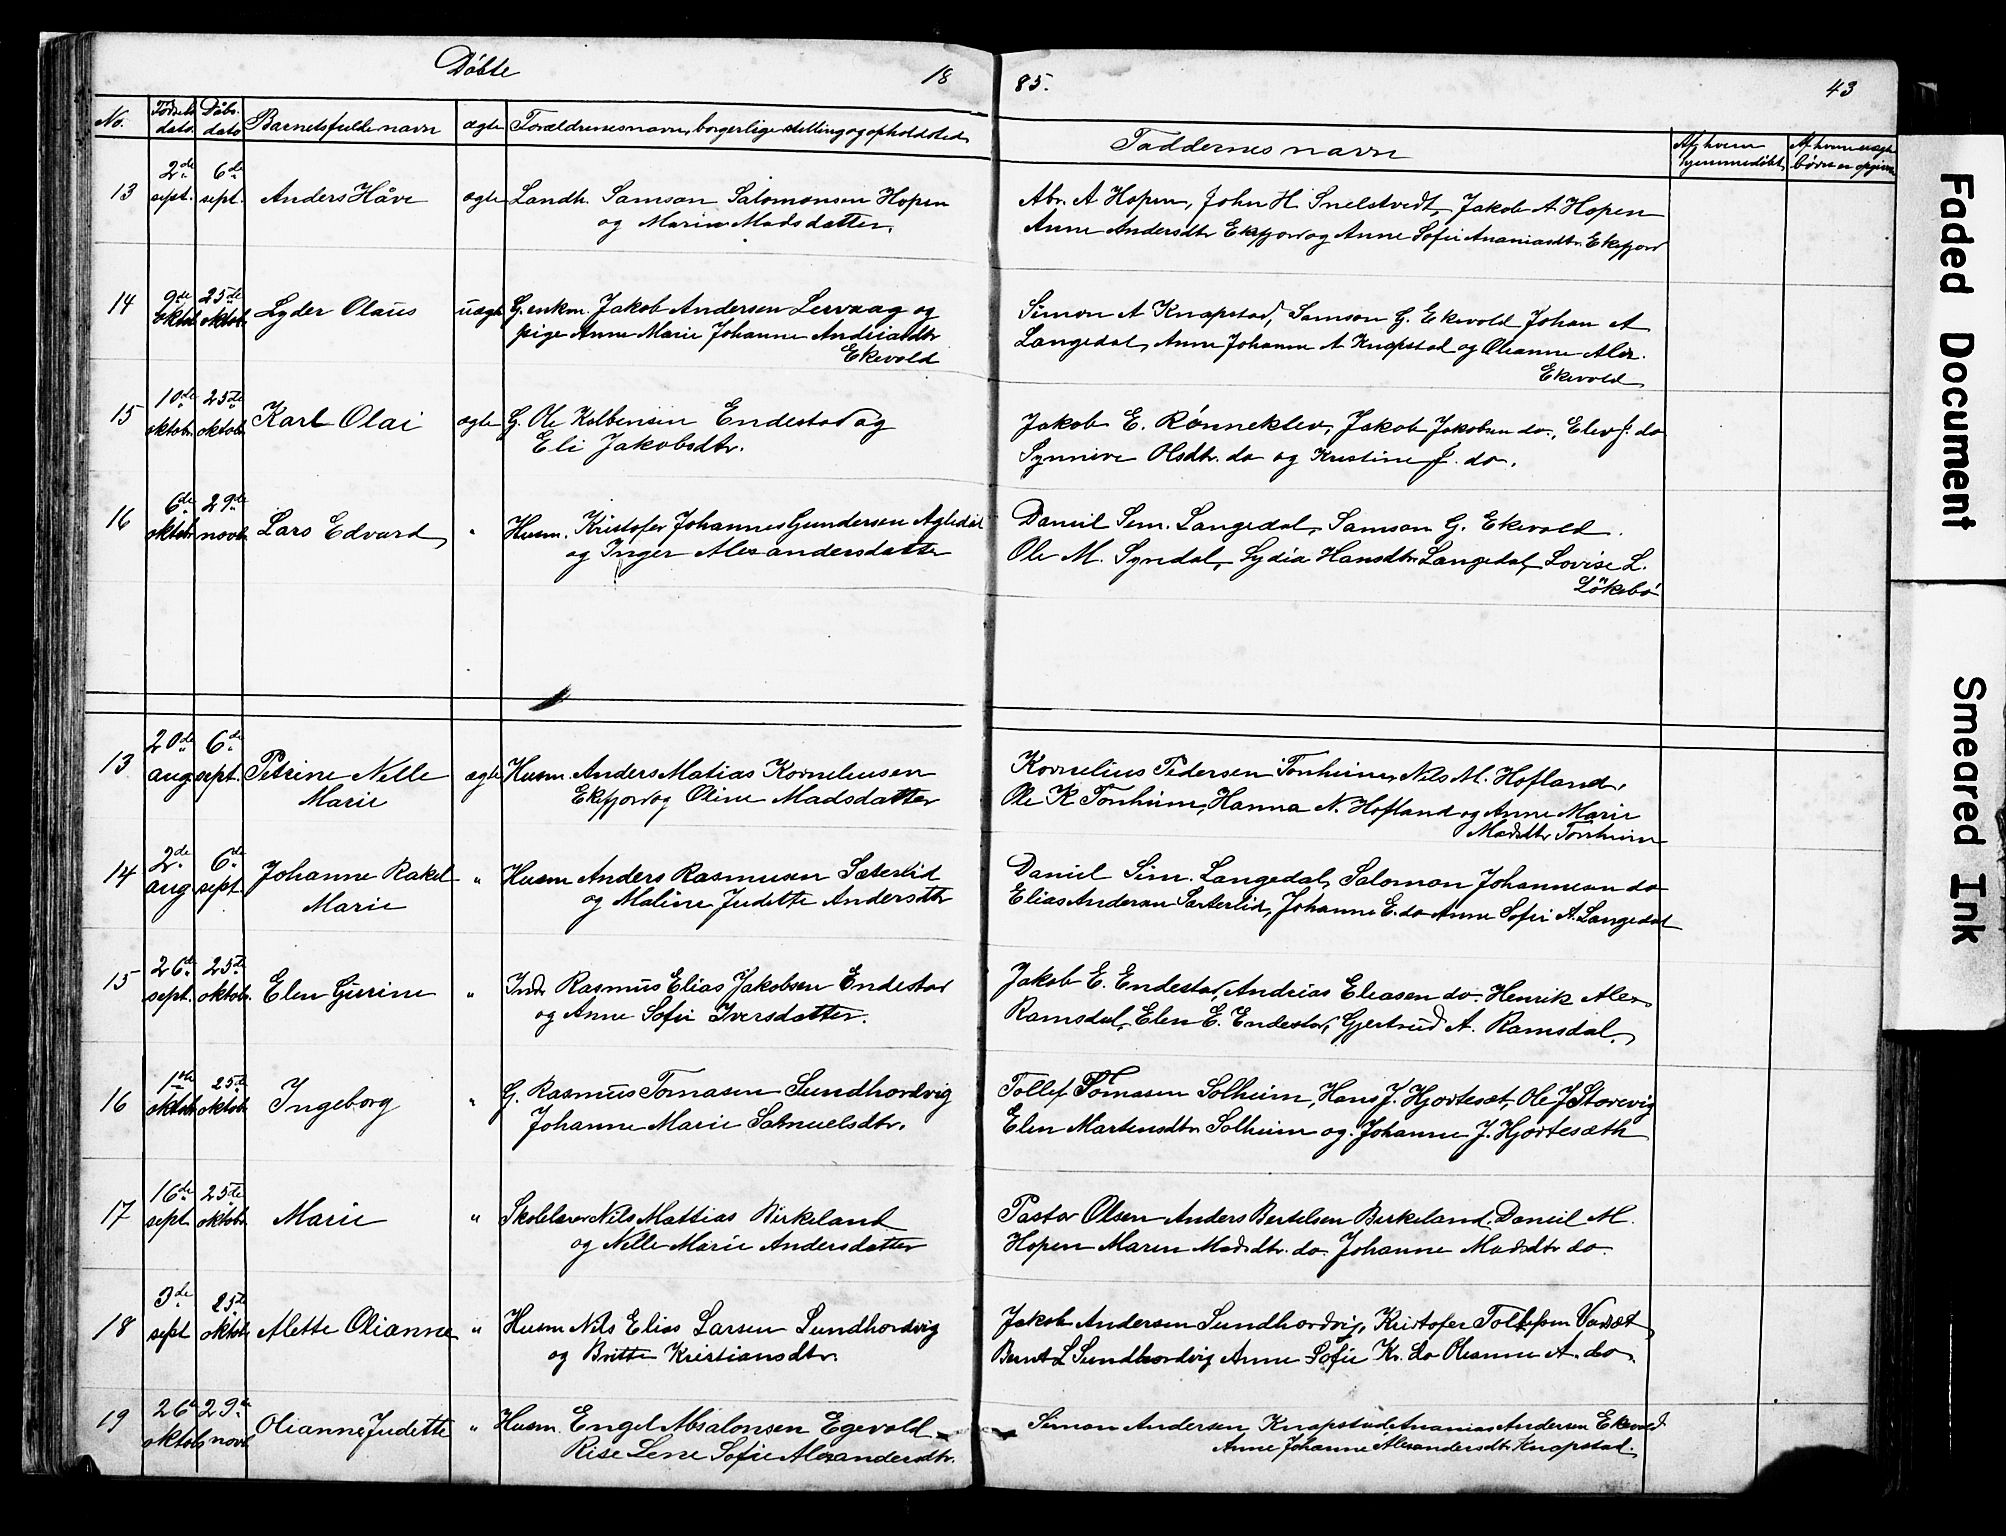 Döbte
18
85.
43
No.
Födsels dato
Döbs dato
Barnets fulde navn
ægte
Forældrenes navn, borgerlige stilling og opholdsted
Faddernes navn
Af hvem hjemmedöbt
13
2de sept.
6de sept.
Anders Håve
ægte
Landh. Samson Salomonsen Hopen
og Marin Madsdatter.
Abr. A Hopen, John H. Snelstvedt, Jakob A Hopen
Anne Andersdtr Ekefjord og Anne Sofie Ananiasdtr. Ekefjord
14
9de oktob.
25de oktob.
Lyder Olaus
uægte
G. enkm. Jakob Andersen Lervaag og
pige Anne Marie Johanne Andreasdtr
Ekevold
Simon A Knapstad, Samson G. Ekevold Johan A
Langedal, Anne Johanne A Knapstad og Olianne Alex.
Ekevold
15
10de oktob.
25de oktob.
Karl Olai
ægte
G. Ole Kolbensen Endestad og
Eli Jakobsdtr.
Jakob E. Rønneklev, Jakob Jakobsen do., Elev J. do
Synneve Olsdtr. do og Kristine J. do.
16
6de oktob
29de novb.
Lars Edvard
"
Husm. Kristofer Johannes Gundersen Agledal
og Inger Alexandersdatter
Daniel Sem. Langedal, Samson G. Ekevold.
Ole M. Syndal, Lydia Hansdtr. Langedal, Lovise L.
Lökebö
13
20de aug.
6de sept.
Petrine Nelle
Marie
ægte
Husm. Anders Matias Korneliusen
Ekefjord og Oline Madsdatter
Kornelius Pedersen Tonheim, Nils M. Hofland,
Ole K Tonheim, Hanna N. Hofland og Anne Marie
Madsdtr Tonheim
14
2de aug
6de sept.
Johanne Rakel
Marie
"
Husm Anders Rasmusen Sæterlid
og Maline Judette Andersdtr
Daniel Sim. Langedal, Salomon Johannesen do
Elias Andersen Sæterlid, Johanne E. do Anne Sofie A. Langedal
15
26de sept.
25de oktob.
Elen Gurine
"
Indr Rasmus Elias Jakobsen Endestad
og Anne Sofie Iversdatter.
Jakob E. Endestad, Andreas Eleasen do. Henrik Alex.
Ramsdal, Elen E. Endestad, Gjertrud A. Ramsdal.
16
1ste oktob
25de oktob
Ingeborg
"
G. Rasmus Tomasen Sundhordvig
Johanne Marie Samuelsdtr.
Tollef Tomasen Solheim, Hans J. Hjortesæt, Ole J Storevig
Elen Martensdtr Solheim og Johanne J. Hjortesæth
17
16de sept
25de oktob.
Marie
"
Skolelærer Nils Mattias Birkeland
og Nelle Marie Andersdatter
Pastor Olsen Anders Bertelsen Birkeland, Daniel M.
Hopen Maren Madsdtr. do. Johanne Madsdtr do.
18
3de sept
25de oktob.
Alette Olianne
"
Husm Nils Elias Larsen Sundhordvig
og Britte Kristiansdtr.
Jakob Andersen Sundhordvig, Kristofer Tollefsen Varsæt
Bernt L Sundhordvig Anne Sofie Kr. do Olianne A. do.
19
26de oktob
29de novb
Olianne Judette
"
Husm. Engel Absalonsen Egevold
Rise Lene Sofie Alexandersdtr.
Simon Andersen Knapstad, Ananias Andersen Ekevold
Anne Johanne Alexandersdtr. Knapstad.
Faded Document
Smeared Ink